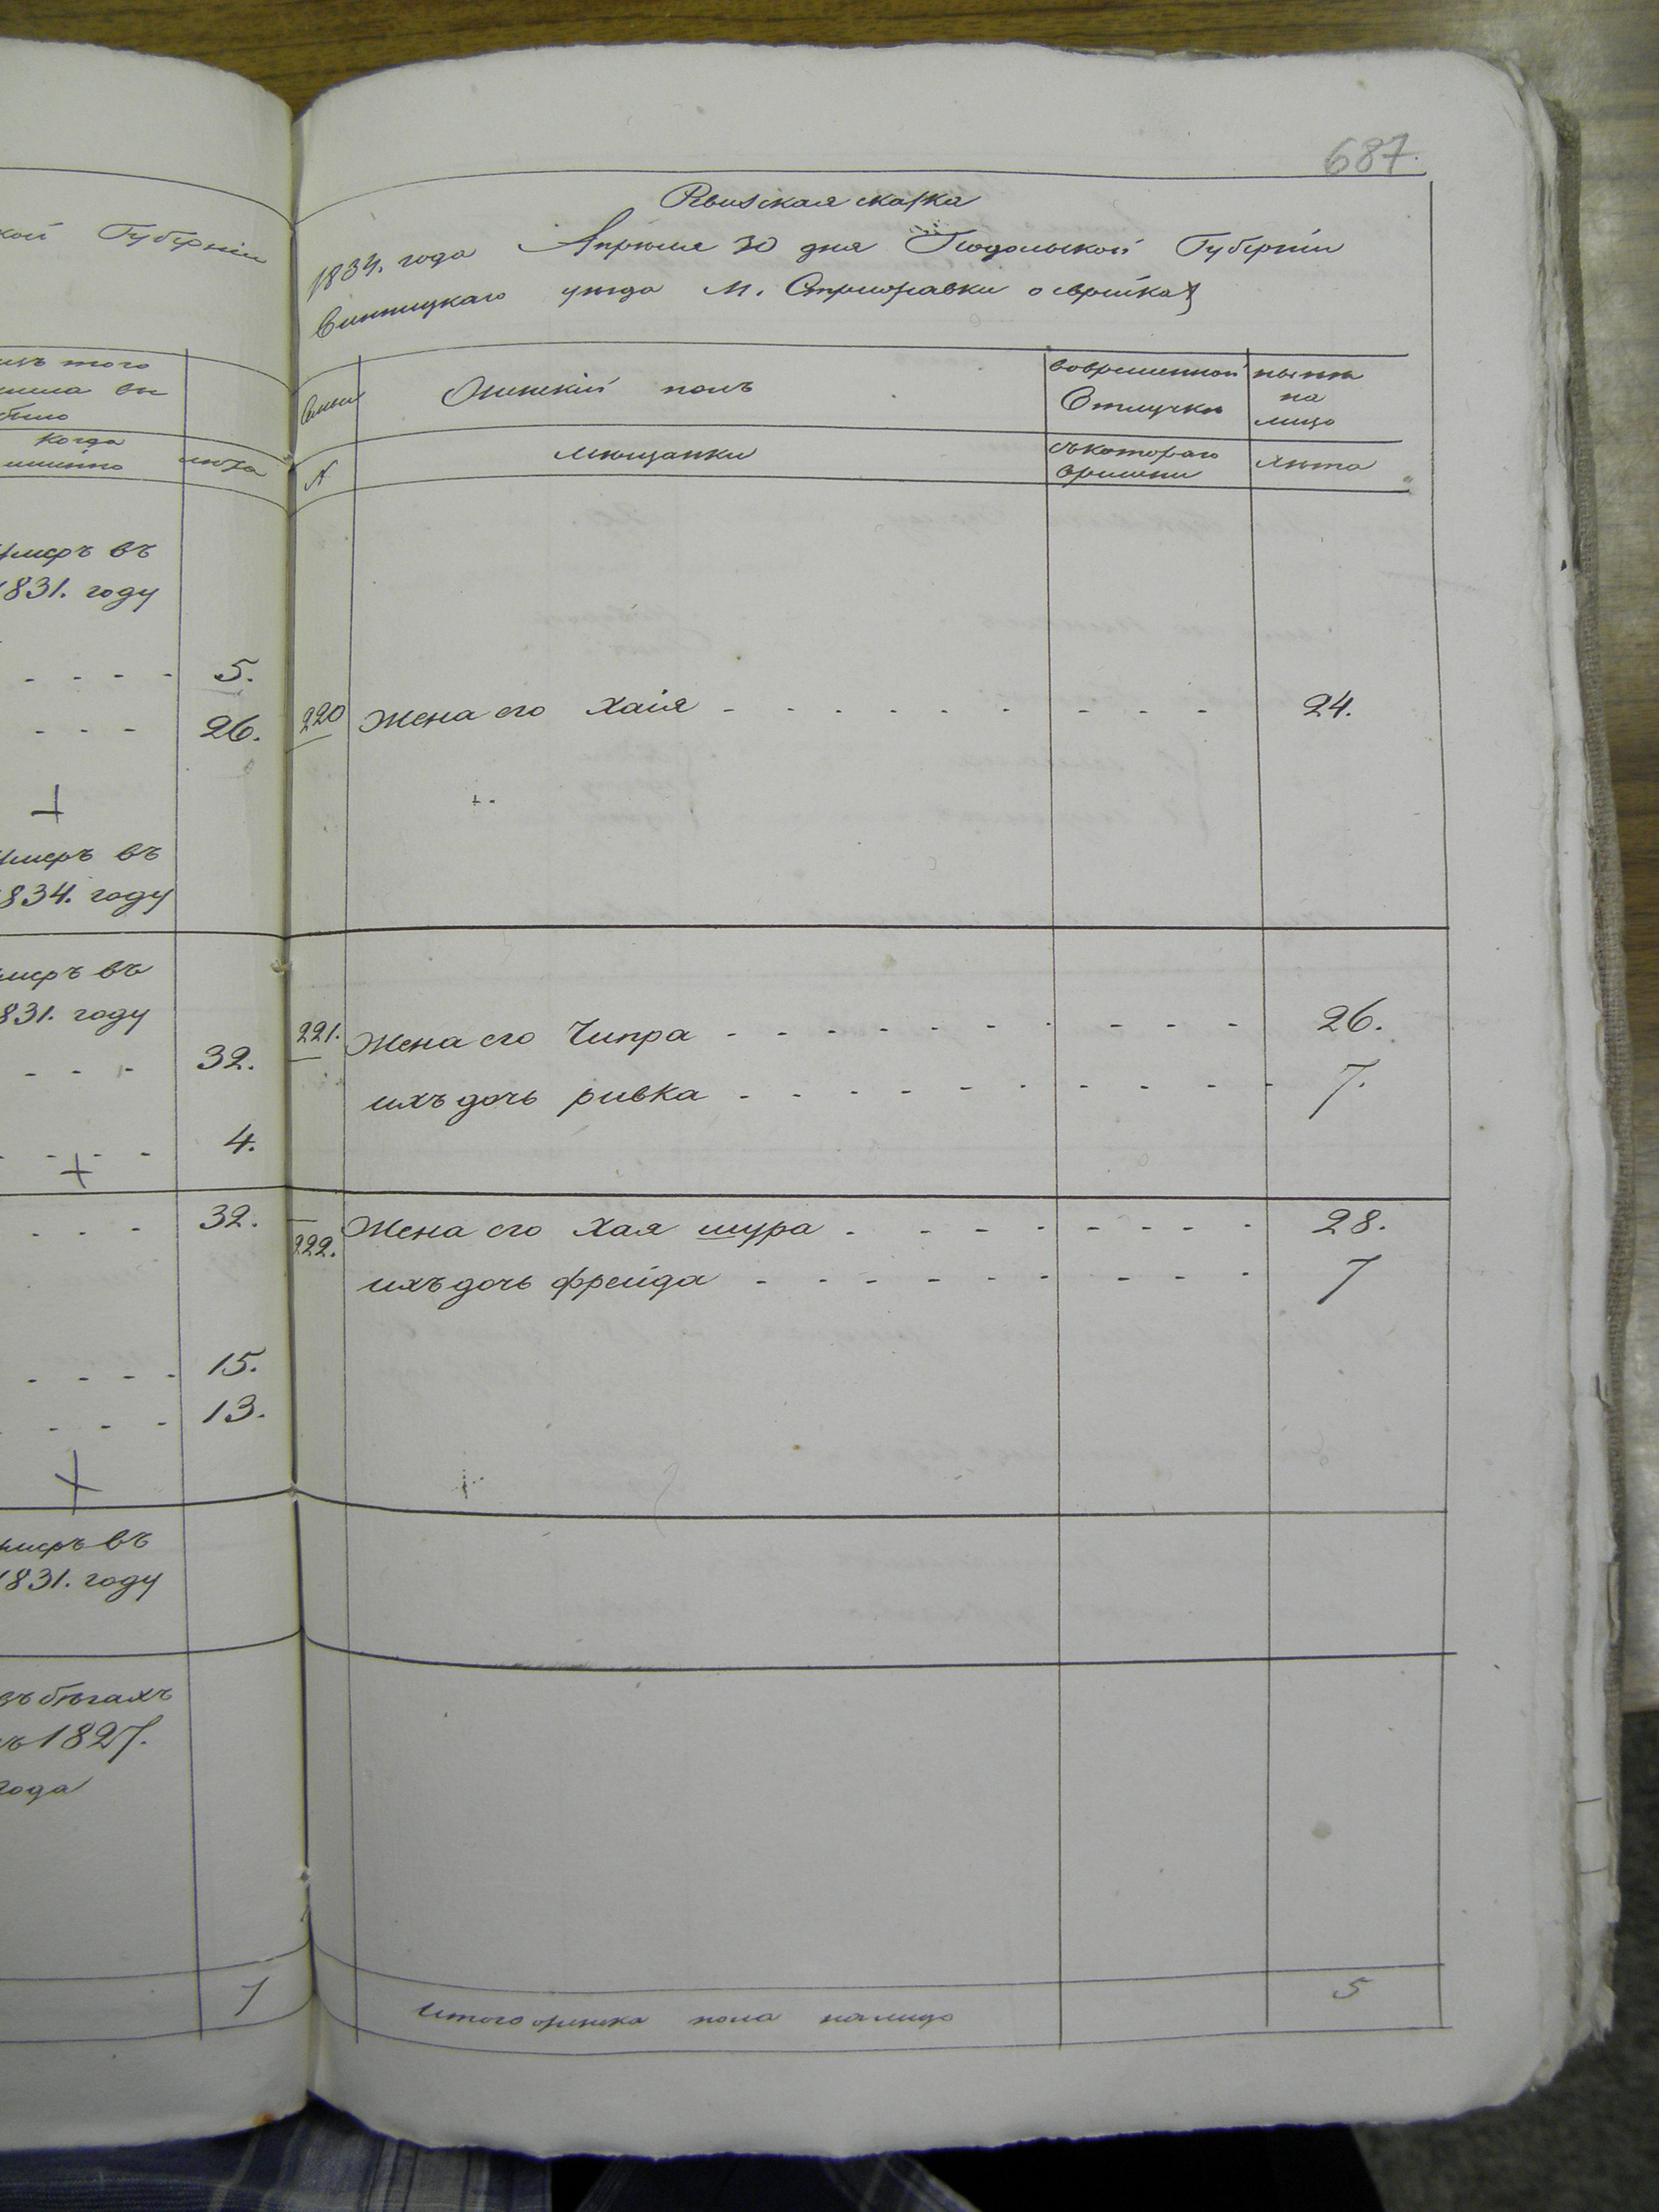 кой Губерніи
изъ того
числа вы
было
когда
именно
лѣта
умеръ въ
1831. году
5.
26.
умеръ въ
1834. году
умеръ въ
1831. году
32.
4.
32.
15.
13.
умеръ въ
1831. году
въ бѣгахъ
съ 1827.
года
7
687.
Ревизская сказка
1834. года Апрѣля 30 дня Подольской Губерніи
Винницкаго уѣзда М. Стрижавки о еврейкахъ
Семьи
Женскій полъ
во временной
Отлучкѣ
нынѣ
на
лицо
№
мѣщанки
съ котораго
времени
лѣта
220 Жена его Хаія - - - - - - - - - 24.
221. Жена его Ципра - - - - - - - - - 26.
ихъ дочь ривка - - - - - - - - - - 7.
222. Жена его Хая шура - - - - - - - - 28.
ихъ дочь фрейда - - - - - - - - - 7
Итого женска пола налицо 5